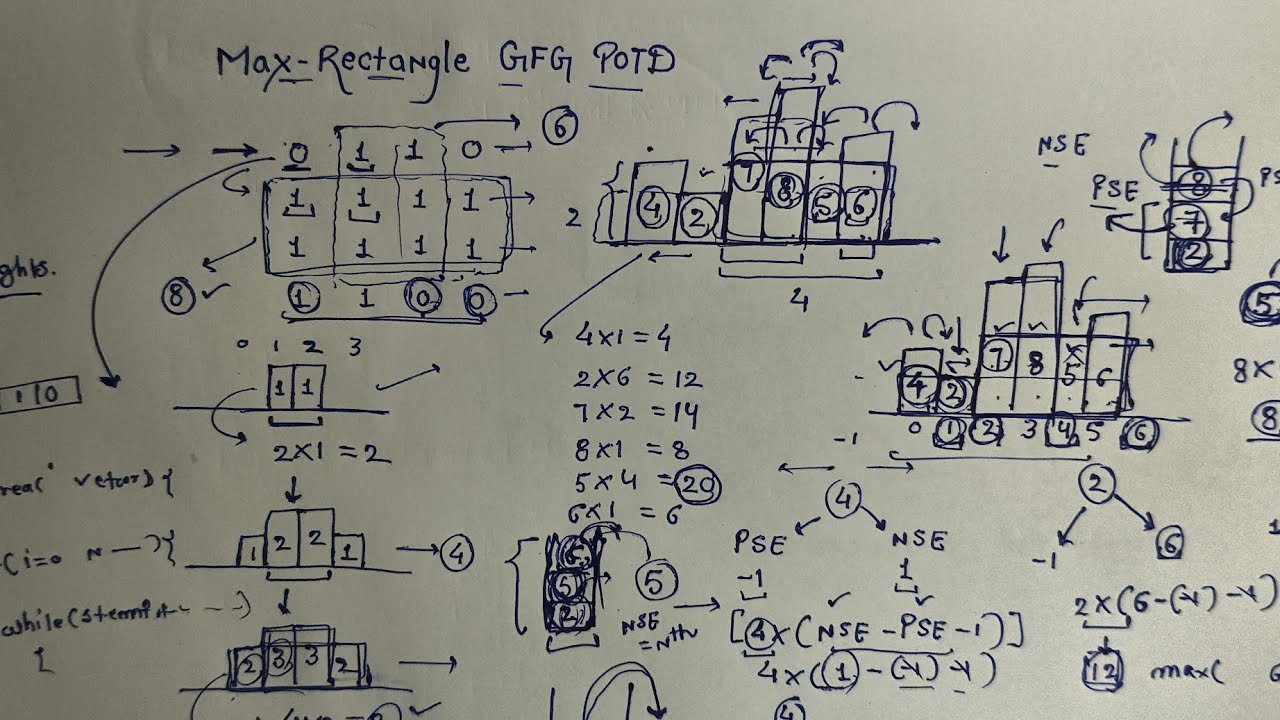 Max-Rectangle GFG POTD
0 1 1 0
6
1 1 1 1
1 1 1 1
8
1 1 0 0
0 1 2 3
1 1
2x1 = 2
1 2 2 1
4
2 3 3 2
ghts.
110
rea( vector) {
(i=0 n —) {
while(
{
2
4 2 7 8 5 6
4
4x1 = 4
2x6 = 12
7x2 = 14
8x1 = 8
5x4 = 20
6x1 = 6
5
2
5
NSE
= nth
NSE
PSE
8
7
2
PS
5
8x
8
4 2 7 8 5 6
-1 0 1 2 3 4 5 6
4
PSE NSE
-1 1
[4x(NSE-PSE-1)]
4x(1-(-1)-1)
4
2
-1 6
2x(6-(-1)-1)
12 max( 6
1